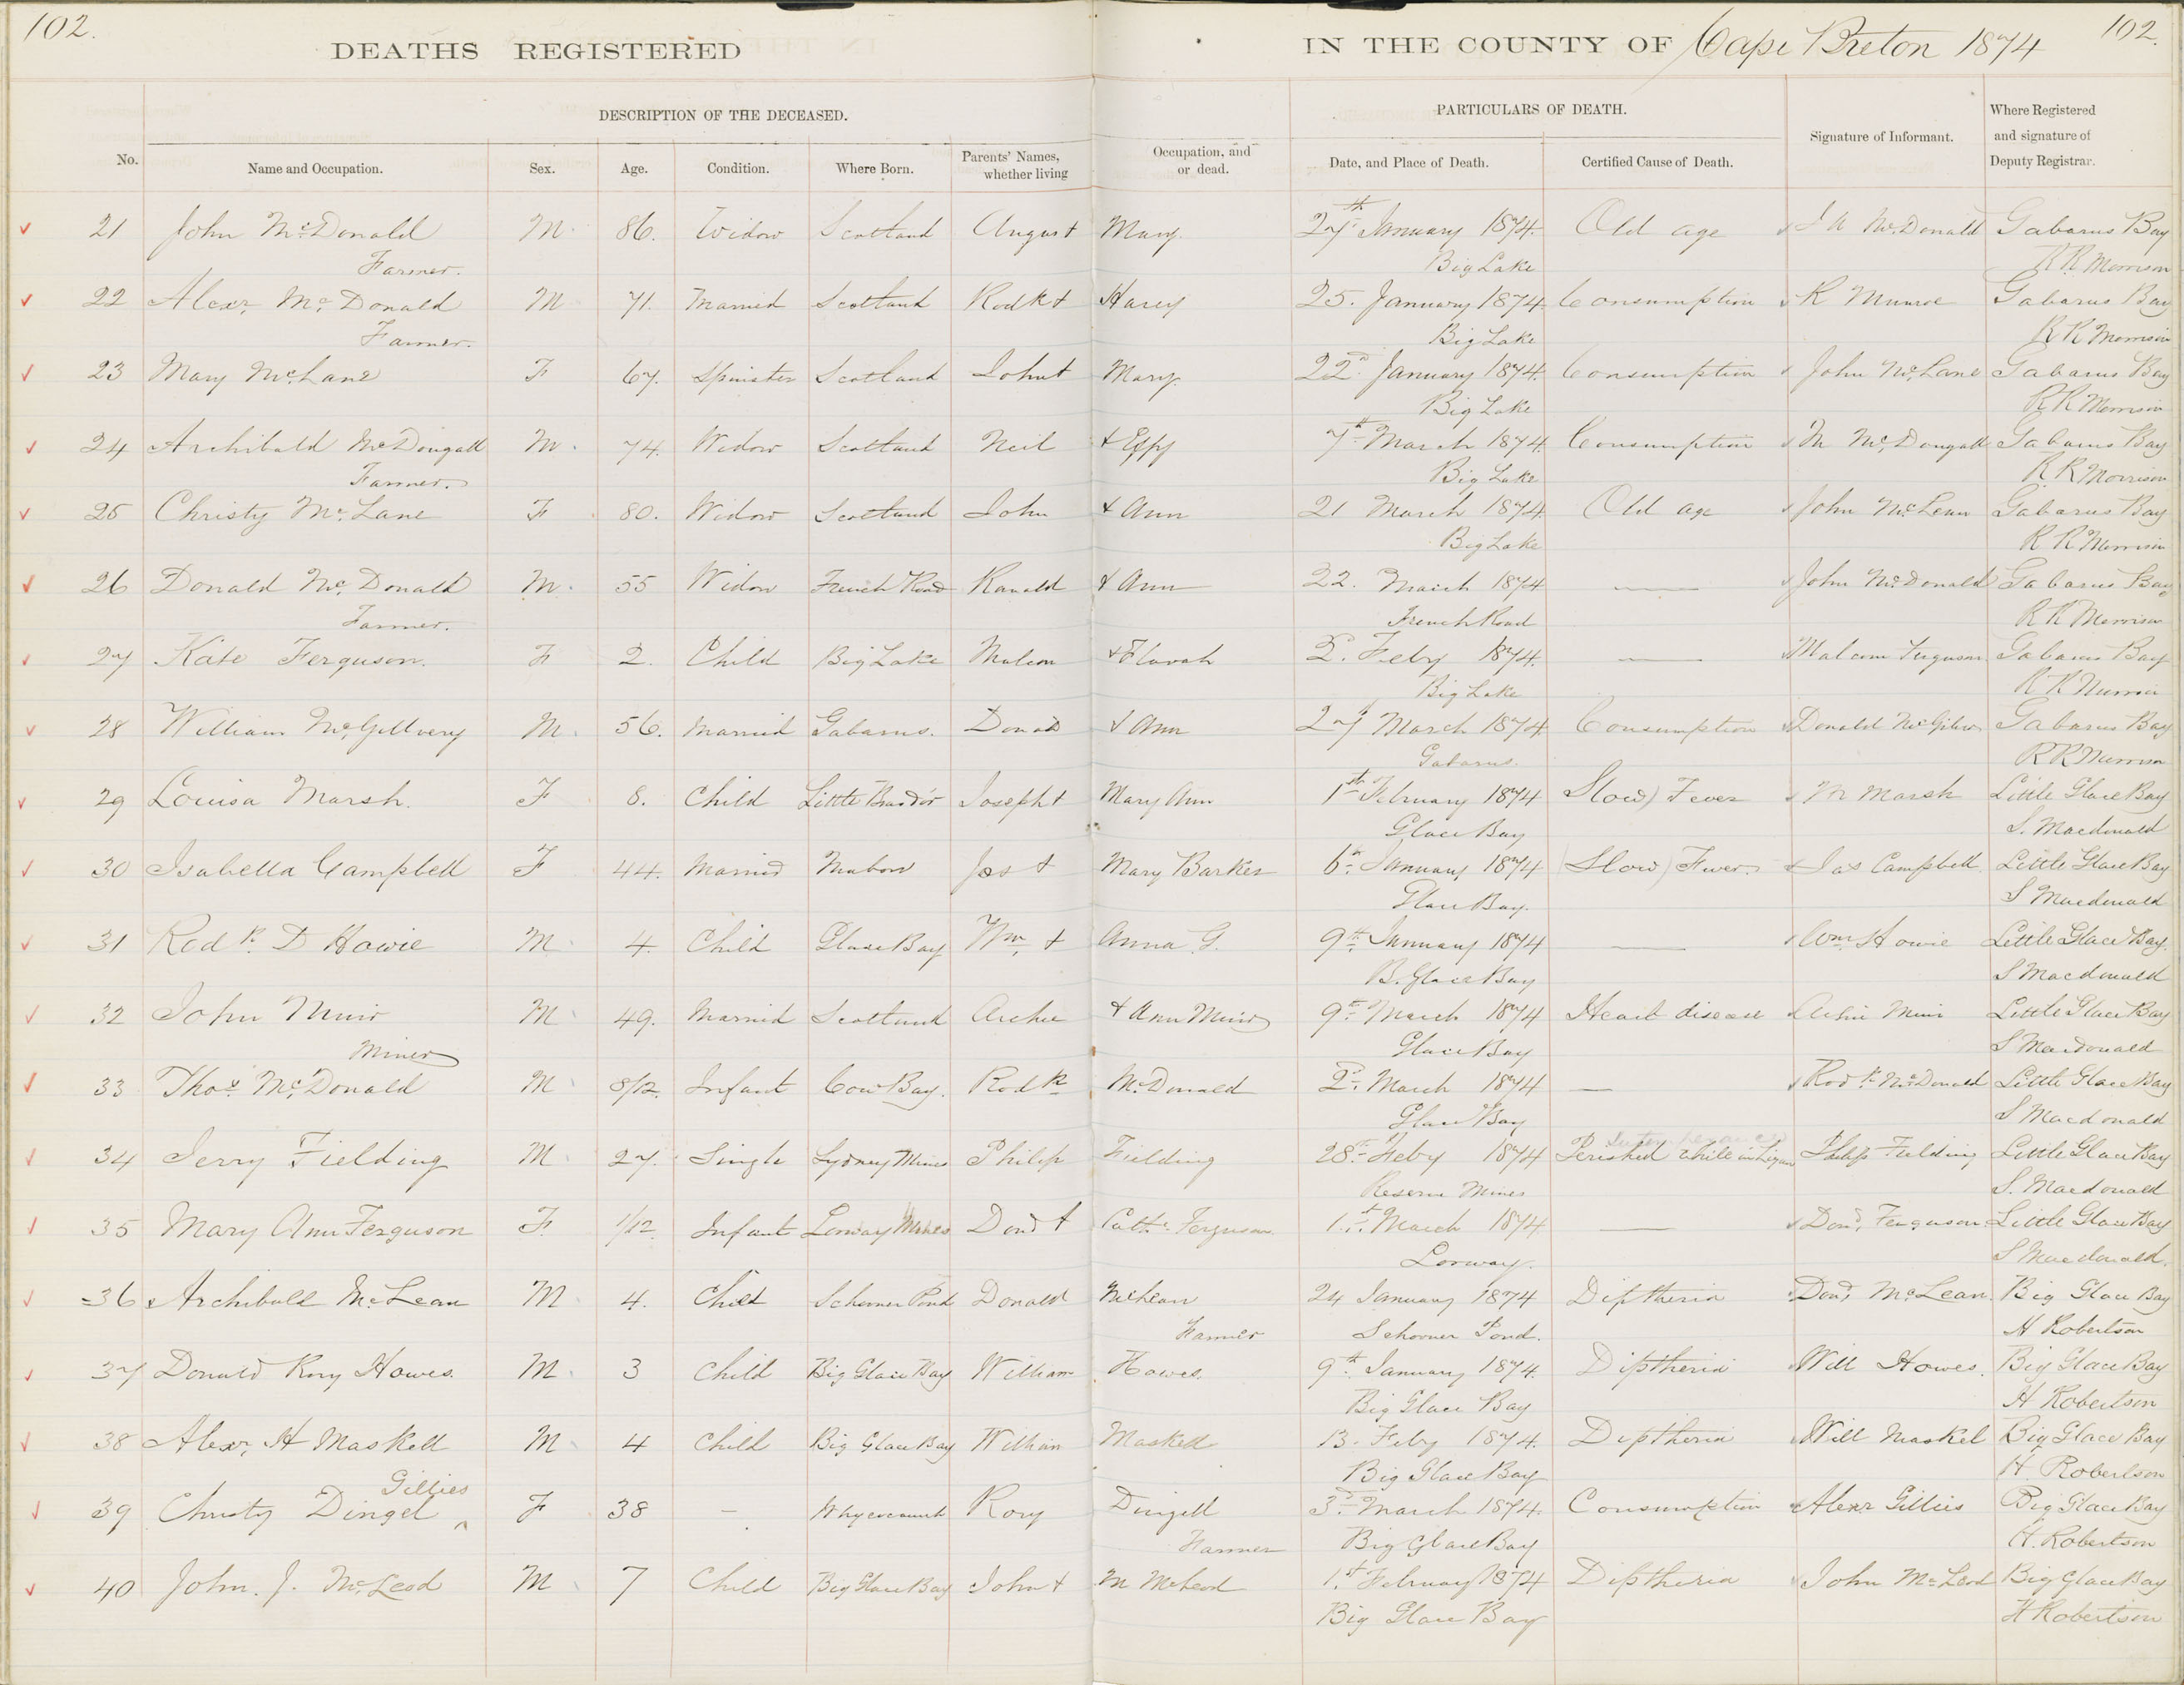 102.
DEATHS REGISTERED
IN THE COUNTY OF Cape Breton 1874
102.
DESCRIPTION OF THE DECEASED.
PARTICULARS OF DEATH.
No.
Name and Occupation.
Sex.
Age.
Condition.
Where Born.
Parents' Names, whether living
Occupation, and or dead.
Date, and Place of Death.
Certified Cause of Death.
Signature of Informant.
Where Registered and signature of Deputy Registrar.
21 John McDonald M. 86. Widow Scotland August Mary 27th January 1874. Old age McDonald Gabarus Bay
Farmer. Big Lake R R Morrison
22 Alexr. Mc. Donald M 71. Married Scotland Rodk + 25. January 1874. Consumption R Munroe Gabarus Bay
Farmer. Big Lake R R Morrison
23 Mary Mc.Lane F 67. Spinster Scotland John + Mary 22d January 1874. Consumption John Mc.Lane Gabarus Bay
Big Lake R R Morrison
24 Archibald McDougall M. 74. Widow Scotland Neil + Effy 7th March 1874. Consumption M Mc.Dougall Gabarus Bay
Farmer. Big Lake R. R Morrison
25 Christy Mc. Lane F 80. Widow Scotland John + Ann 21 March 1874. Old age John McLean Gabarus Bay
Big Lake R R Morrison
26 Donald Mc. Donald M. 55 Widow French Road Ranald + Ann 22. March 1874 — John McDonald Gabarus Bay
Farmer. French Road R R Morrison
27 Kate Ferguson. F 2. Child Big Lake Malcom + Flavah 2. Feby 1874. — Malcom Ferguson Gabarus Bay
Big Lake R R Morrison
28 William Mc.Gillvery M. 56. Married Gabarus. Donald + Ann 27 March 1874 Consumption Donald Gabarus Bay
Gabarus. R R Morrison
29 Louisa Marsh. F 8. Child Little Bras d'or Joseph + Mary Ann 1st February 1874 Slow Fever M Marsh Little Glace Bay
Glace Bay S. Macdonald
30 Isabella Campbell F 44. Married Mabou Jas + Mary Barker 6th January 1874 Slow Fever. Jas Campbell Little Glace Bay
Glace Bay. S Macdonald
31 Rodk. D Howie M 4. Child Glace Bay Wm. + Anna G. 9th January 1874 — Wm. Howie Little Glace Bay.
B. Glace Bay S Macdonald
32 John Muir M. 49. Married Scotland Archie + Ann Muir 9th March 1874 Heart disease Archie Muir Little Glace Bay
Miner Glace Bay S Macdonald
33 Thos. Mc.Donald M 8/12. Infant Cow Bay. Rodk McDonald 2d March 1874 — Rodk McDonald Little Glace Bay
Glace Bay S Macdonald
34 Jerry Fielding M. 27. Single Sydney Mines Philip Fielding 28th Feby 1874 Perished while in Philip Fielding Little Glace Bay
Reserve Mines S. Macdonald
35 Mary Ann Ferguson F. 1/12. Infant Lorway Mines Dond + Cathe Ferguson 1st March 1874 — Dond. Ferguson Little Glace Bay
Lorway. S Macdonald.
36 Archibald McLean M. 4. Child Schooner Pond Donald McLean 24 January 1874 Diptheria Dond. McLean. Big Glace Bay
Farmer Schooner Pond. H Robertson
37 Donald Rory Howes. M. 3 Child Big Glace Bay William Howes. 9th January 1874. Diptheria Will Howes. Big Glace Bay
Big Glace Bay H Robertson
38 Alexr. H Maskell M 4 Child Big Glace Bay William Maskell 13. Feby 1874. Diptheria Will Maskel Big Glace Bay
Big Glace Bay H. Robertson
Gillies
39 Christy Dingel ^ F 38 – Whycocomah Rory Dingell 3d March 1874. Consumption Alexr Gillies Big Glace Bay
Farmer Big Glace Bay H. Robertson
40 John. J. Mc.Leod M 7 Child Big Glace Bay John + M McLeod 1st February 1874 Diptheria John McLeod Big Glace Bay
Big Glace Bay H Robertson